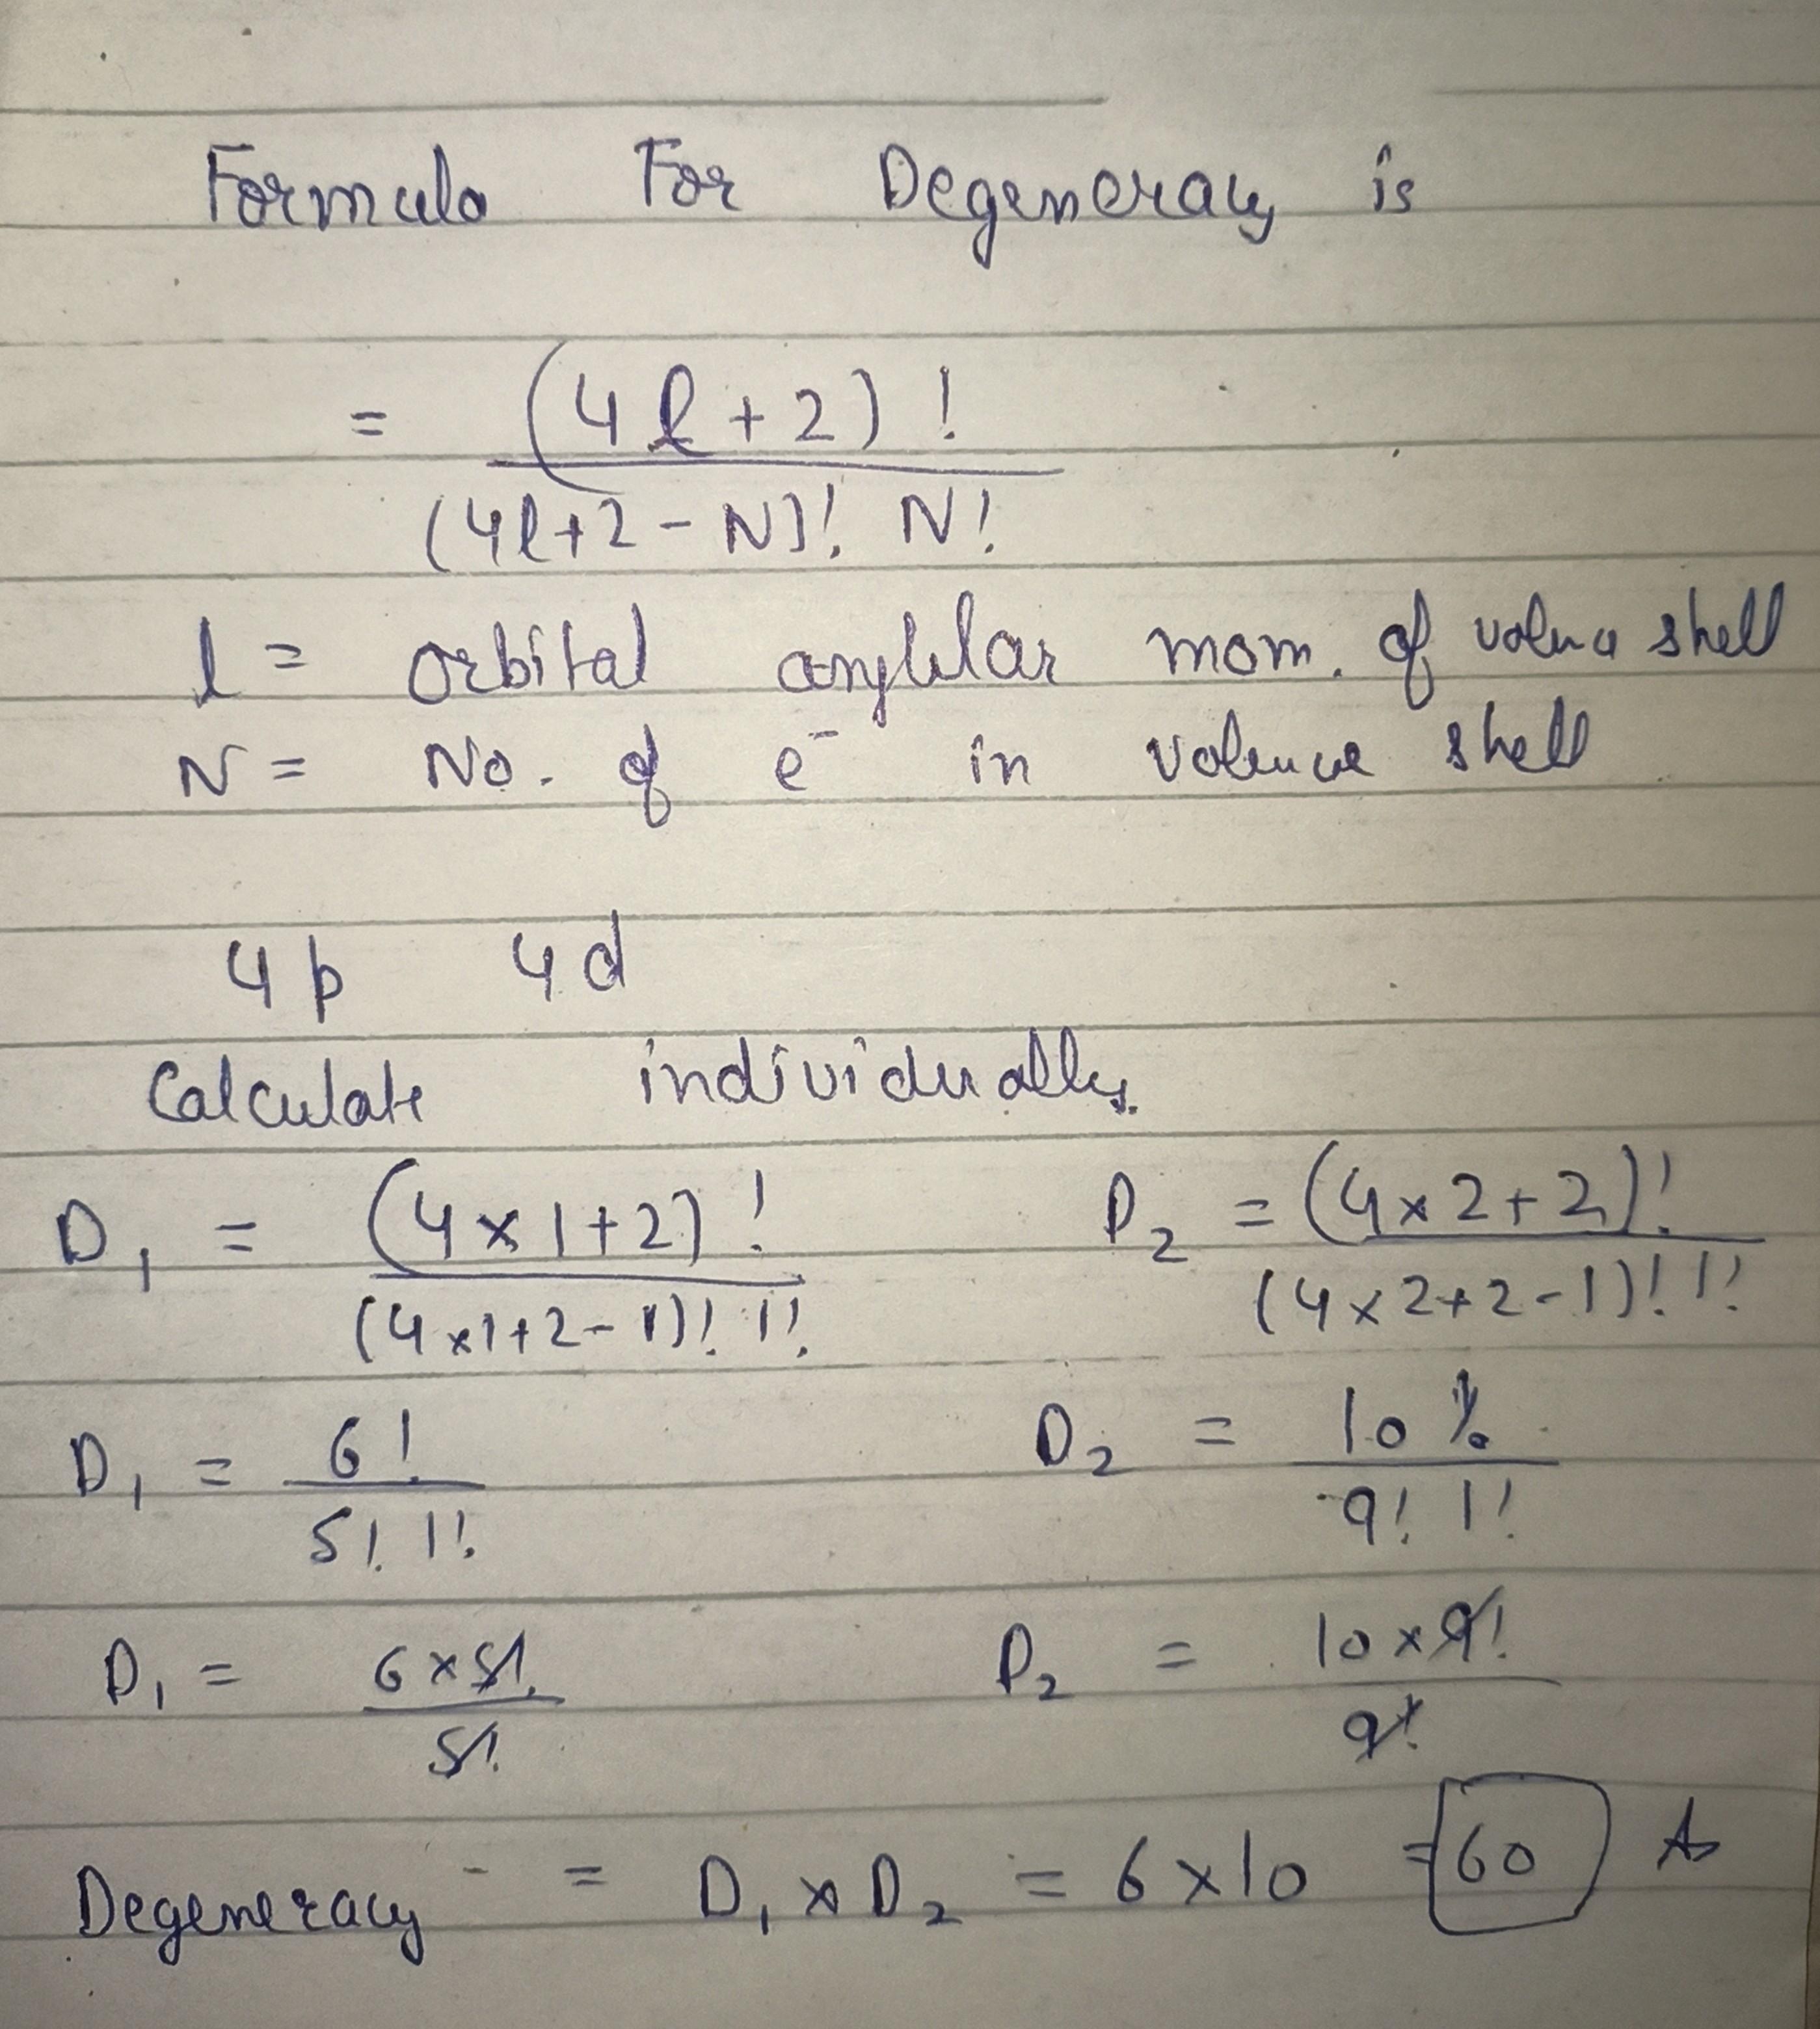 Formula For Degeneracy is
= (4l+2)!
(4l+2-N)! N!
l = orbital angular mom. of valence shell
N = No. of e⁻ in valence shell
4p 4d
Calculate individually.
D₁ = (4×1+2)! D₂ = (4×2+2)!
(4×1+2-1)! 1! (4×2+2-1)! 1!
D₁ = 6! D₂ = 10!
5! 1! 9! 1!
D₁ = 6×5! D₂ = 10×9!
5! 9!
Degeneracy = D₁ × D₂ = 6×10 = 60